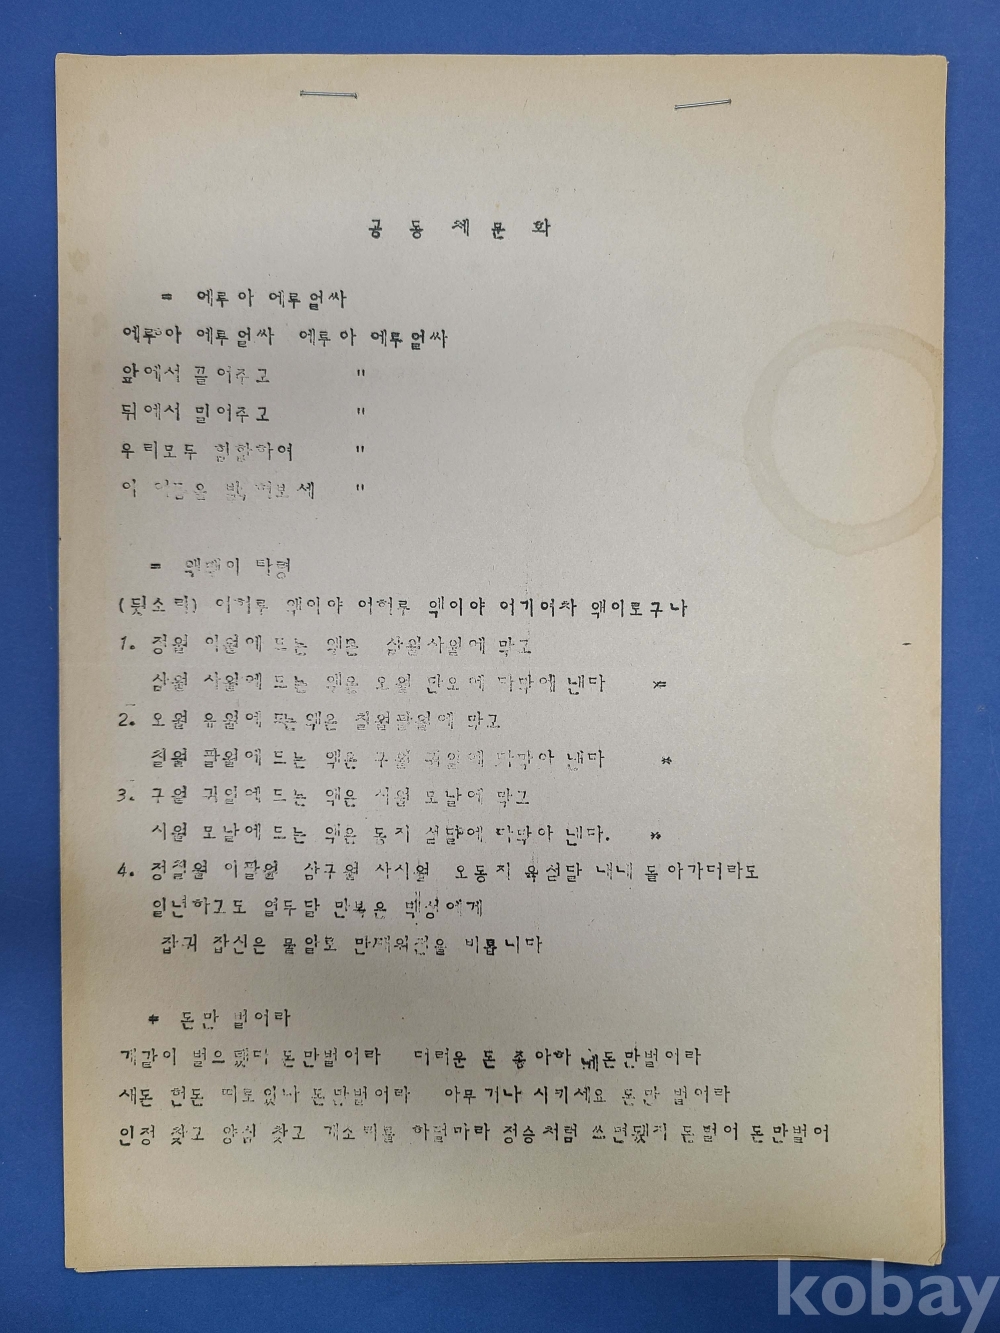 공 동 체 문 화
= 에루아 에루얼싸
에루아 에루얼싸 에루아 에루얼싸
앞에서 끌어주고 "
뒤에서 밀어주고 "
우리모두 힘합하여 "
이 어둠을 밝혀보세 "
= 액맥이 타령
(뒷소리) 어허루 액이야 어허루 액이야 어기여차 액이로구나
1. 정월 이월에 드는 액은 삼월사월에 막고
삼월 사월에 드는 액은 오월 단오에 다막에 낸다 *
2. 오월 유월에 드는액은 칠월팔월에 막고
칠월 팔월에 드는 액은 구월 귀일에 다막아 낸다 *
3. 구월 귀일에 드는 액은 시월 모날에 막고
시월 모날에 드는 액은 동지 섣달에 다막아 낸다. *
4. 정칠월 이팔월 삼구월 사시월 오동지 육섣달 내내 돌아가더라도
일년하고도 열두달 만복은 백성에게
잡귀 잡신은 물알로 만대위전을 비옵니다
* 돈만 벌어라
개같이 벌으랬다 돈만벌어라 더러운 돈 좋아하네 돈만벌어라
새돈 헌돈 따로있나 돈만벌어라 아무거나 시키세요 돈만 벌어라
인정 찾고 양심 찾고 개소리를 하덜마라 정승처럼 쓰면됐지 돈벌어 돈만벌어
kobay